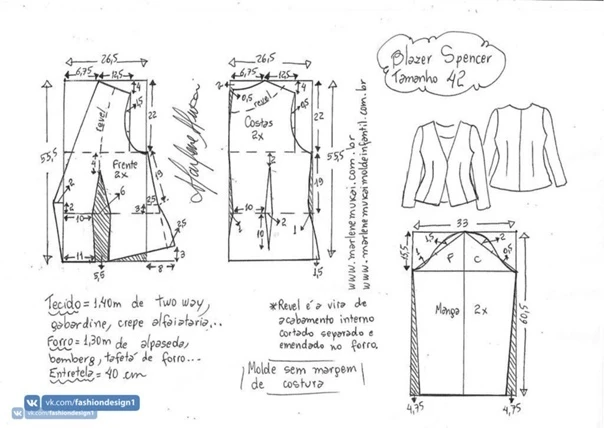 Blazer Spencer
Tamanho 42
26,5
6,75
12,5
4
0,5
22
revel
55,5
Frente
2x
4
6
2
2
10
3
25
19
11
5,5
25
3
8
26,5
6,75
12,5
2
0,5
revel
4
1,5
22
Costas
2x
55,5
2
19
10
2
10
1
1
1,5
Marlene Mukai
www.marlenemukai.com.br
www.marlenemukaimoldeinfantil.com.br
33
15,5
1,5
2
1
0,5
F
C
Manga
2x
60,5
4,75
4,75
Tecido = 1,40m de two way,
gabardine, crepe alfaiataria...
Forro = 1,30m de alpaseda,
bemberg, tafetá de forro...
Entretela = 40 cm
*Revel é a vira de
acabamento interno
cortado separado e
emendado no forro.
Molde sem margem
de costura
vk.com/fashiondesign1
vk.com/fashiondesign1